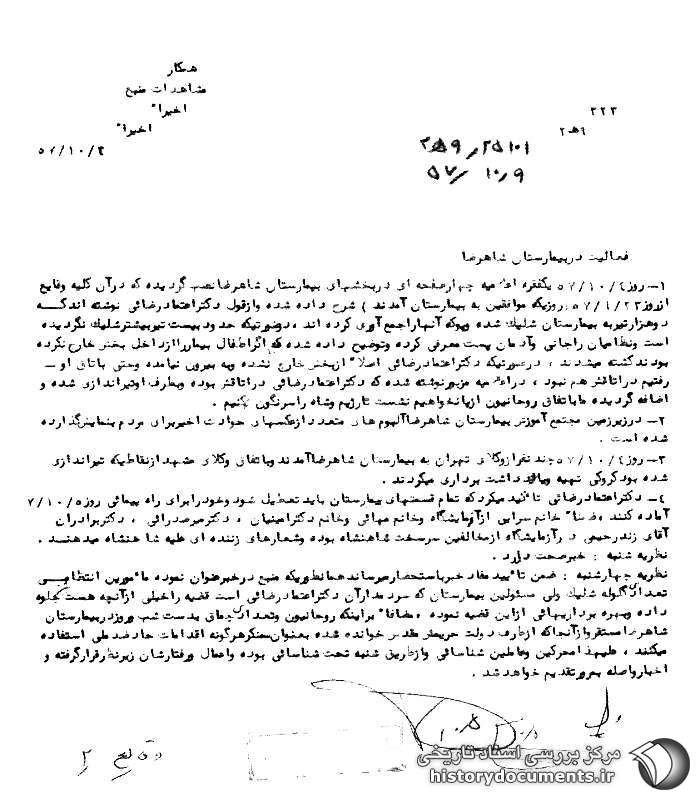 همکار
مشاهدات منبع
اخیرا"
اخیرا"
۵۷/۱۰/۴
۳۲۳
۲ﻫ۱
۲۵۱۰۱
۵۷/۱۰/۹
فعالیت در بیمارستان شاهرضا
۱ــ روز ۵۷/۱۰/۴ یکفقره اعلامیه چهارصفحه ای دربخشهای بیمارستان شاهرضا نصب گردیده که درآن کلیه وقایع
ازروز ۵۷/۹/۲۳ (روزیکه موافقین به بیمارستان آمدند) شرح داده شده وازقول دکتراعتمادرضائی نوشته اندکه
دوهزارتیربه بیمارستان شلیک شده وپوکه آنهاراجمع آوری کرده اند ، درصورتیکه حدودبیست تیربیشترشلیک نگردیده
است ونظامیان راجانی وآدمان پست معرفی کرده وتوضیح داده شده که اگراطفال بیمارراازداخل بخش خارج نکرده
بودندکشته میشدند ، درصورتیکه دکتراعتمادرضائی اصلا" ازبخش خارج نشده وبه بیرون نیامده وحتی باتاق او ــ
رفتیم دراتاقش هم نبود ، دراعلامیه مزبورنوشته شده که دکتراعتمادرضائی دراتاقش بوده وبطرف اوتیراندازی شده و
اضافه گردیده ماباتفاق روحانیون ازپانخواهیم نشست تارژیم وشاه راسرنگون کنیم .
۲ــ درزیرزمین مجتمع آموزش بیمارستان شاهرضاآلبوم های متعددازعکسهای حوادث اخیربرای مردم بنمایش گذارده
شده است .
۳ــ روز ۵۷/۱۰/۴ چند نفرازوکلای تهران به بیمارستان شاهرضاآمدندوباتفاق وکلای مشهدازنقاطیکه تیراندازی
شده بودکروکی تهیه ویادداشت برداری میکردند .
۴ــ دکتراعتمادرضائی تائکیدمیکردکه تمام قسمتهای بیمارستان بایدتعطیل شودوخودرابرای راه پیمائی روز ۵۷/۱۰/۵
آماده کنند ،ضمنا" خانم سرابی ازآزمایشگاه وخانم مهائی وخانم دکترامینیان ، دکترمیرصدرائی ، دکتربرادران
آقای زندرحیمی درآزمایشگاه ازمخالفین سرسخت شاهنشاه بوده وشعارهای زننده ای علیه شاهنشاه میدهند .
نظریه شنبه : خبرصحت دارد .
نظریه چهارشنبه : ضمن تائیدمفادخبرباستحضارمیرساندهمانطوریکه منبع درخبرعنوان نموده مامورین انتظامی
تعدادی گلوله شلیک ولی مسئولین بیمارستان که سردمدارآن دکتراعتمادرضائی است قضیه راخیلی ازآنچه هست جلوه
داده وبهره برداریهائی ازاین قضیه نموده ،مضافا" براینکه روحانیون وتعدادی چماق بدست شب وروزدربیمارستان
شاهرضامستقروازآنجاکه ازطرف دولت حریمش مقدس خوانده شده بعنوان سنگرهرگونه اقدامات حادضدملی استفاده
میکنند ، علیهذامحرکین وعاملین شناسائی وازطریق شنبه تحت شناسائی بوده واعمال ورفتارشان زیرنظرقرارگرفته و
اخبارواصله بمرورتقدیم خواهدشد .
وقایع
مرکز بررسی اسناد تاریخی
historydocuments.ir